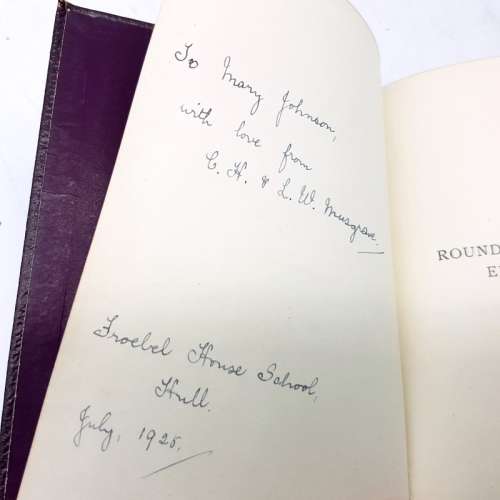 To Mary Johnson,
with love from
C. H. & L. W. Musgrave.
Froebel House School,
Hull.
July, 1925.
ROUND